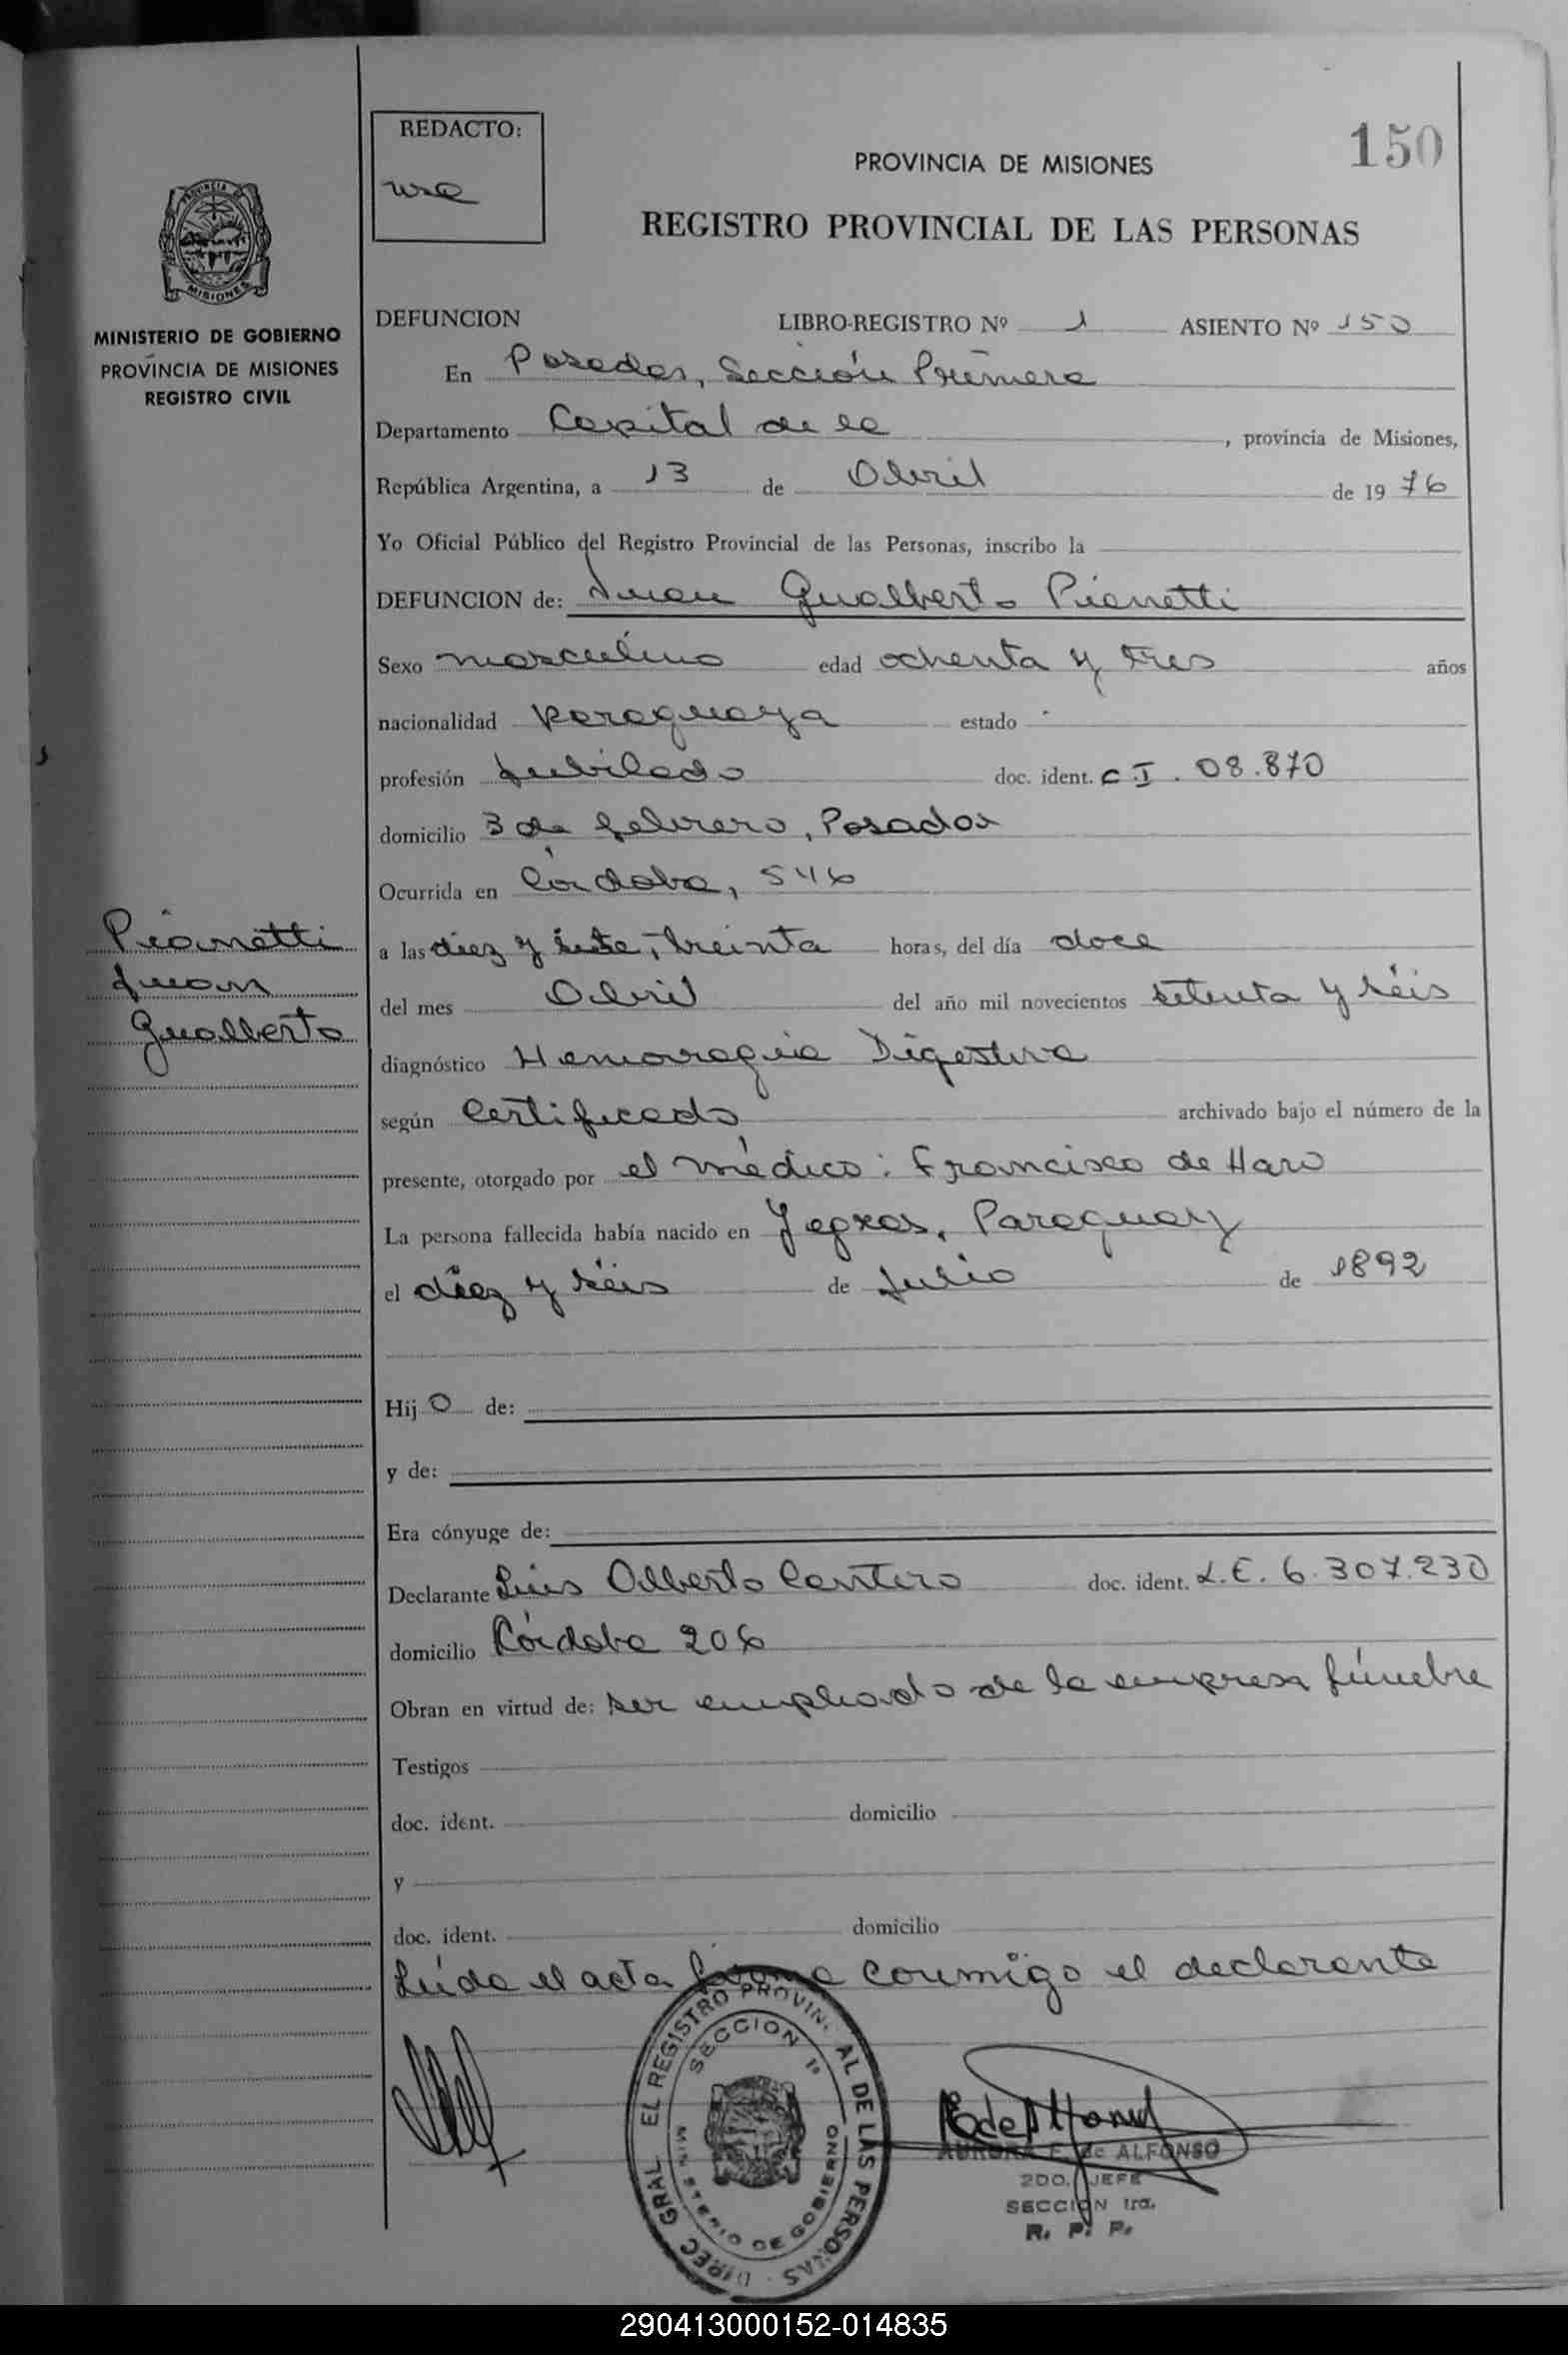 150
REDACTO:
PROVINCIA DE MISIONES
REGISTRO PROVINCIAL DE LAS PERSONAS
PROVINCIA
MISIONES
MINISTERIO DE GOBIERNO
PROVINCIA DE MISIONES
REGISTRO CIVIL
DEFUNCION LIBRO-REGISTRO Nº 1 ASIENTO Nº 150
En Posadas, Sección Primera
Departamento Capital de la , provincia de Misiones,
República Argentina, a 13 de Abril de 1976
Yo Oficial Público del Registro Provincial de las Personas, inscribo la
DEFUNCION de: Juan Gualberto Pianetti
Sexo masculino edad ochenta y tres años
nacionalidad paraguaya estado
profesión Jubilado doc. ident. C I. 08.870
domicilio 3 de febrero, Posadas
Ocurrida en Córdoba, 546
a las diez y siete, treinta horas, del día doce
del mes Abril del año mil novecientos setenta y séis
diagnóstico Hemorragia Digestiva
según Certificado archivado bajo el número de la
presente, otorgado por el médico: Francisco de Haro
La persona fallecida había nacido en Yegros, Paraguay
el diez y séis de Julio de 1892
Pianetti
Juan
Gualberto
Hijo de:
y de:
Era cónyuge de:
Declarante Luis Alberto Cantero doc. ident. L.E. 6.307.230
domicilio Córdoba 206
Obran en virtud de: ser empleado de la empresa fúnebre
Testigos
doc. ident. domicilio
y
doc. ident. domicilio
Leída el acta firma conmigo el declarante
DIREC GRAL EL REGISTRO PROVIN AL DE LAS PERSONAS
SECCION 1ª
MINISTERIO DE GOBIERNO
AURORA F. de ALFONSO
2DO. JEFE
SECCION 1ra.
R. P. P.
290413000152-014835